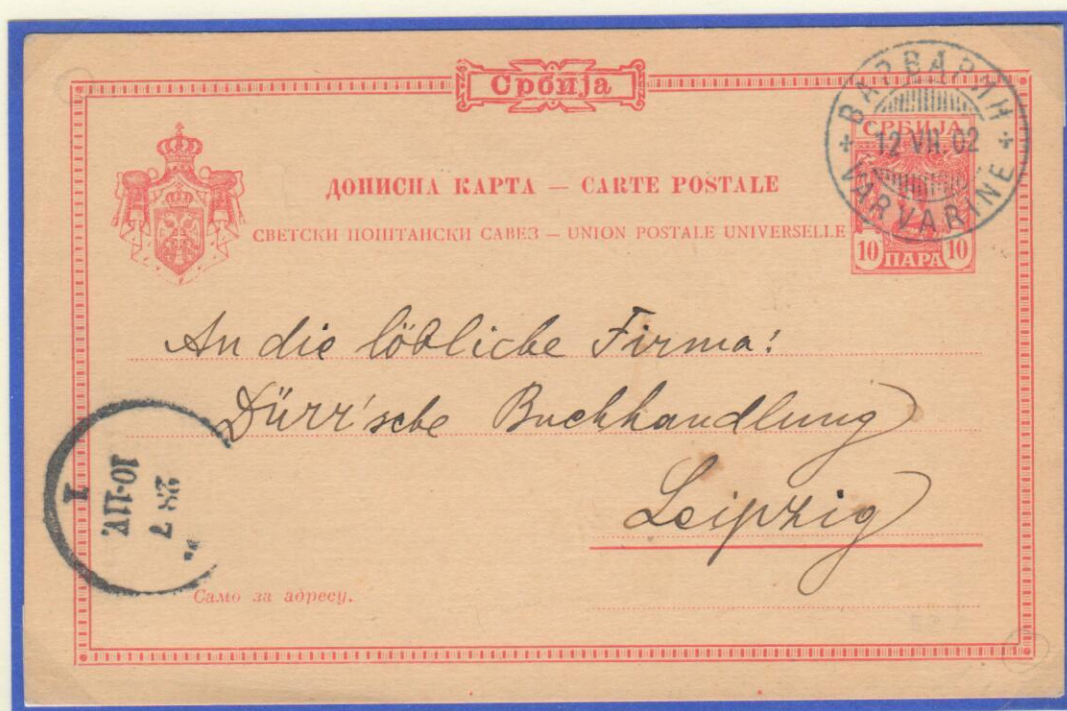 Србија
ВАРВАРИН
СРБИЈА
12 VII.02
VARVARINE
ДОПИСНА КАРТА — CARTE POSTALE
СВЕТСКИ ПОШТАНСКИ САВЕЗ — UNION POSTALE UNIVERSELLE
10 ПАРА 10
An die löbliche Firma:
Dürr'sche Buchhandlung
Leipzig
28 7
10-11V.
1
Само за адресу.